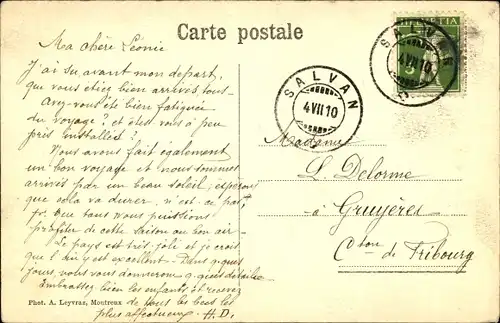 Carte postale
HELVETIA
SALVAN
4 VII 10
SALVAN
4 VII 10
Ma chère Léonie
J'ai su avant mon départ,
que vous étiez bien arrivés, tous.
Avez-vous été bien fatiguée
du voyage? et êtes-vous à peu
près installés?
Nous avons fait également
un bon voyage et nous sommes
arrivés par un beau soleil, espérons
que cela va durer, n'est-ce pas,
que tous nous puissions
profiter de cette saison au bon air.
Le pays est très joli et je crois
que l'air y est excellent. Dans q. ques
jours, nous vous donnerons q. ques détails.
Embrassez bien les enfants et recevez
de nous les bests les
plus affectueux. H.D.
Madame
L. Delorme
à Gruyères
Cton de Fribourg
Phot. A. Leyvraz, Montreux